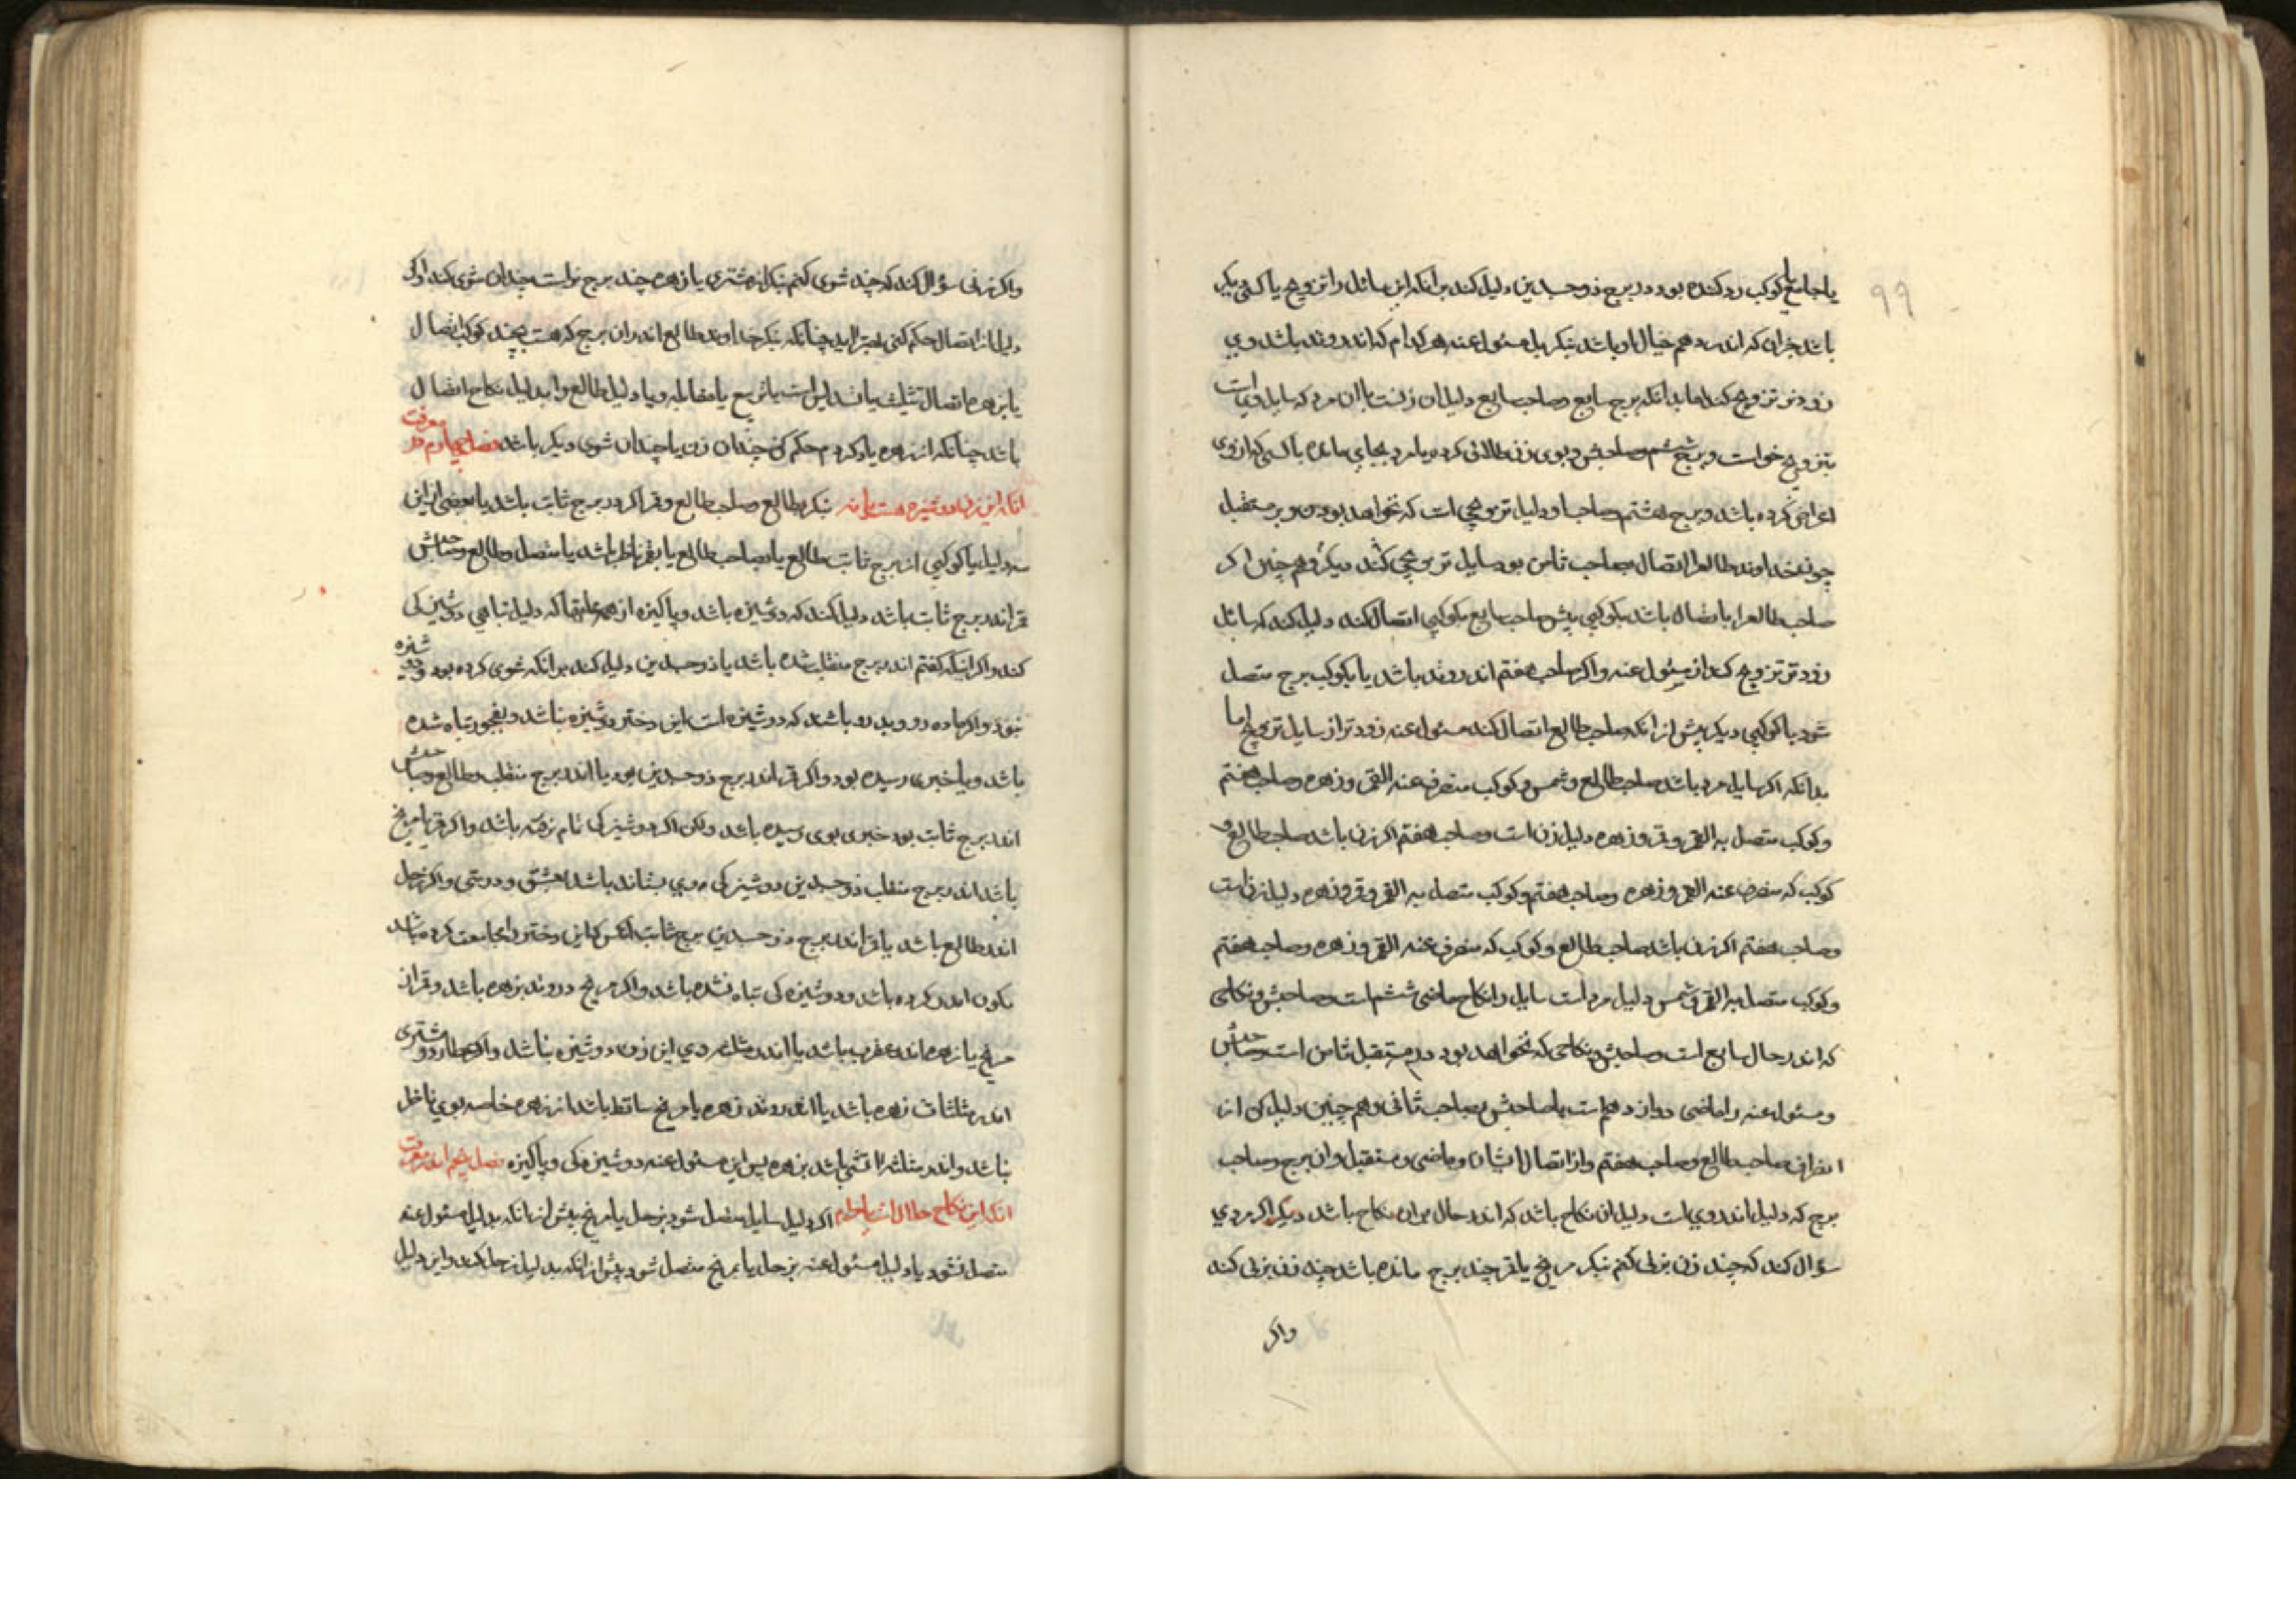 ۹۹
یا جامع یا کوکب رد کننده بود در برج ذوجسدین دلیل کند بر انکه این سائل را تزویج با کسی دیکر
باشد جز ان که اندر وهم خیال او باشد بنکر دلیل مسئول عنه هر کدام که اندر وتد باشد وی
زودتر تزویج کند اما بدانکه برج سابع وصاحب سابع دلیل ان زنست یا ان مرد که سایل
بتزویج خواست وبرج ششم وصاحبش وبوی زن طلاق کرده یا مرد بجای مانده یا کسی که از وی
اعراض کرده باشد وبرج هشتم وصاحب او دلیل تزویجی است که نخواهد بودن وبر مستقبل
چون خداوند طالع را اتصال بصاحب ثامن بود سایل تزویجی کند دیکر وهم چنین اکر
صاحب طالع را با اتصال باشد بکوکبی پیش صاحب سابع بکوکبی اتصال کند دلیل کند که سائل
زودتر تزویج کند از مسئول عنه واکر صاحب هفتم اندر وتد باشد یا بکوکب برج متصل
شود یا کوکبی دیکر پیش از انکه صاحب طالع اتصال کند مسئول عنه زودتر از سایل تزویج اما
بدانکه اکر سایل مرد باشد صاحب طالع وشمس وکوکب منصرف عنه القمر وزهره وصاحب هفتم
وکوکب متصل به القمر وقمر وزهره دلیل زن است وصاحب هفتم اکر زن باشد صاحب طالع و
کوکب که منصرف عنه القمر وزهره وصاحب هفتم وکوکب متصل به القمر وقمر وزهره دلیل زن است
وصاحب هفتم اکر زن باشد صاحب طالع وکوکب که منصرف عنه القمر وزهره وصاحب هفتم
وکوکب متصل به القمر وشمس دلیل مرد است سایل را نکاح ماضی ششم است وصاحبش ونکاحی
که اندر حال سابع است وصاحبش ونکاحی که نخواهد بود در مستقبل ثامن است وصاحبش
ومسئول عنه را ماضی دوازدهم است با صاحبش صاحب ثانی وهم چنین دلیل کن از
انصراف صاحب طالع وصاحب هفتم واز اتصال ایشان وماضی ومستقبل وان برج وصاحب
برج که دلیل اندر وی است دلیل ان نکاح باشد که اندر حال بود ان نکاح باشد دیکر اکر مردی
سؤال کند که چند زن بزنی کنم بنکر مریخ یا قمر چند برج مانده باشد چند زن بزنی کند
واکر
واکر زنی سؤال کند که چند شوی کنم بنکر از مشتری یا زهره چند برج است چندان شوی کند اواکر
دلیل از اتصال حکم کنی بهتر اید چنانکه بنکر خداوند طالع اندران برج که هست بچند کوکب اتصال
یا بزهره اتصال تثلیث یا تسدیس است یا تربیع یا مقابله ویا دلیل طالع را بدلیل نکاح اتصال
باشد چنانکه از زهره یاد کردم حکم کن چندان زن یا چندان شوی دیکر باشد فصل چهارم در معرفت
انکه این زن دوشیزه هست یا نه بنکر بطالع وصاحب طالع وقمر اکر در برج ثابت باشد یا بعضی از این
سه دلیل یا کوکبی از برج ثابت بطالع یا بصاحب طالع یا بقمر ناظر باشد یا متصل وطالع وصاحبش
قمر اندر برج ثابت باشد دلیل کند که دوشیزه باشد وپاکیزه از همه عیبها که دلیل تباهی دوشیزکی
کند واکر اینکه کفتم اندر برج منقلب شده باشد یا ذوجسدین دلیل کند بر انکه شوی کرده بود ودوشیزه
نبود واکر ماده رو وبد رو باشند که دوشیزه است این دختر دوشیزه نباشد وبفجور تباه شده
باشد ویا خبری رسیده بود واکر قمر اندر برج ذوجسدین بود یا اندر برج منقلب وطالع وصاحبش
اندر برج ثابت بود خبری بوی رسیده باشد ولکن اکر دوشیزکی تمام نرفته باشد واکر قمر یا مریخ
باشد اندر برج منقلب ذوجسدین دوشیزکی وی بستاند باشد بعشق ودوستی واکر زحل
اندر طالع باشد یا قمر اندر برج ذوجسدین برج ثابت انکس که این دختر را مجامعت کرده باشد
بکون اندر کرده باشد ودوشیزه کی تباه نشده باشد واکر مریخ در وتد بزهره باشد وقمر از
مریخ یا زهره اندر عقرب باشد یا اندر مثلثه وی این زن دوشیزه نباشد واکر عطارد ومشتری
اندر مثلثات زهره باشد یا اندر وتد زهره یا مریخ ساقط باشد از زهره خاصه بوی ناظر
نباشد واندر مثلثه انثی باشد بزهره پس این مسئول عنه دوشیزه کی وپاکیزه فصل پنجم اندر معرفت
انکه این نکاح حلال است یا حرام اکر دلیل سایل متصل شود بزحل یا مریخ پیش از انکه بدلیل مسئول عنه
متصل نشود یا دلیل مسئول عنه بزحل یا مریخ متصل شود پیش از انکه بدلیل زحل کند واین دلیل